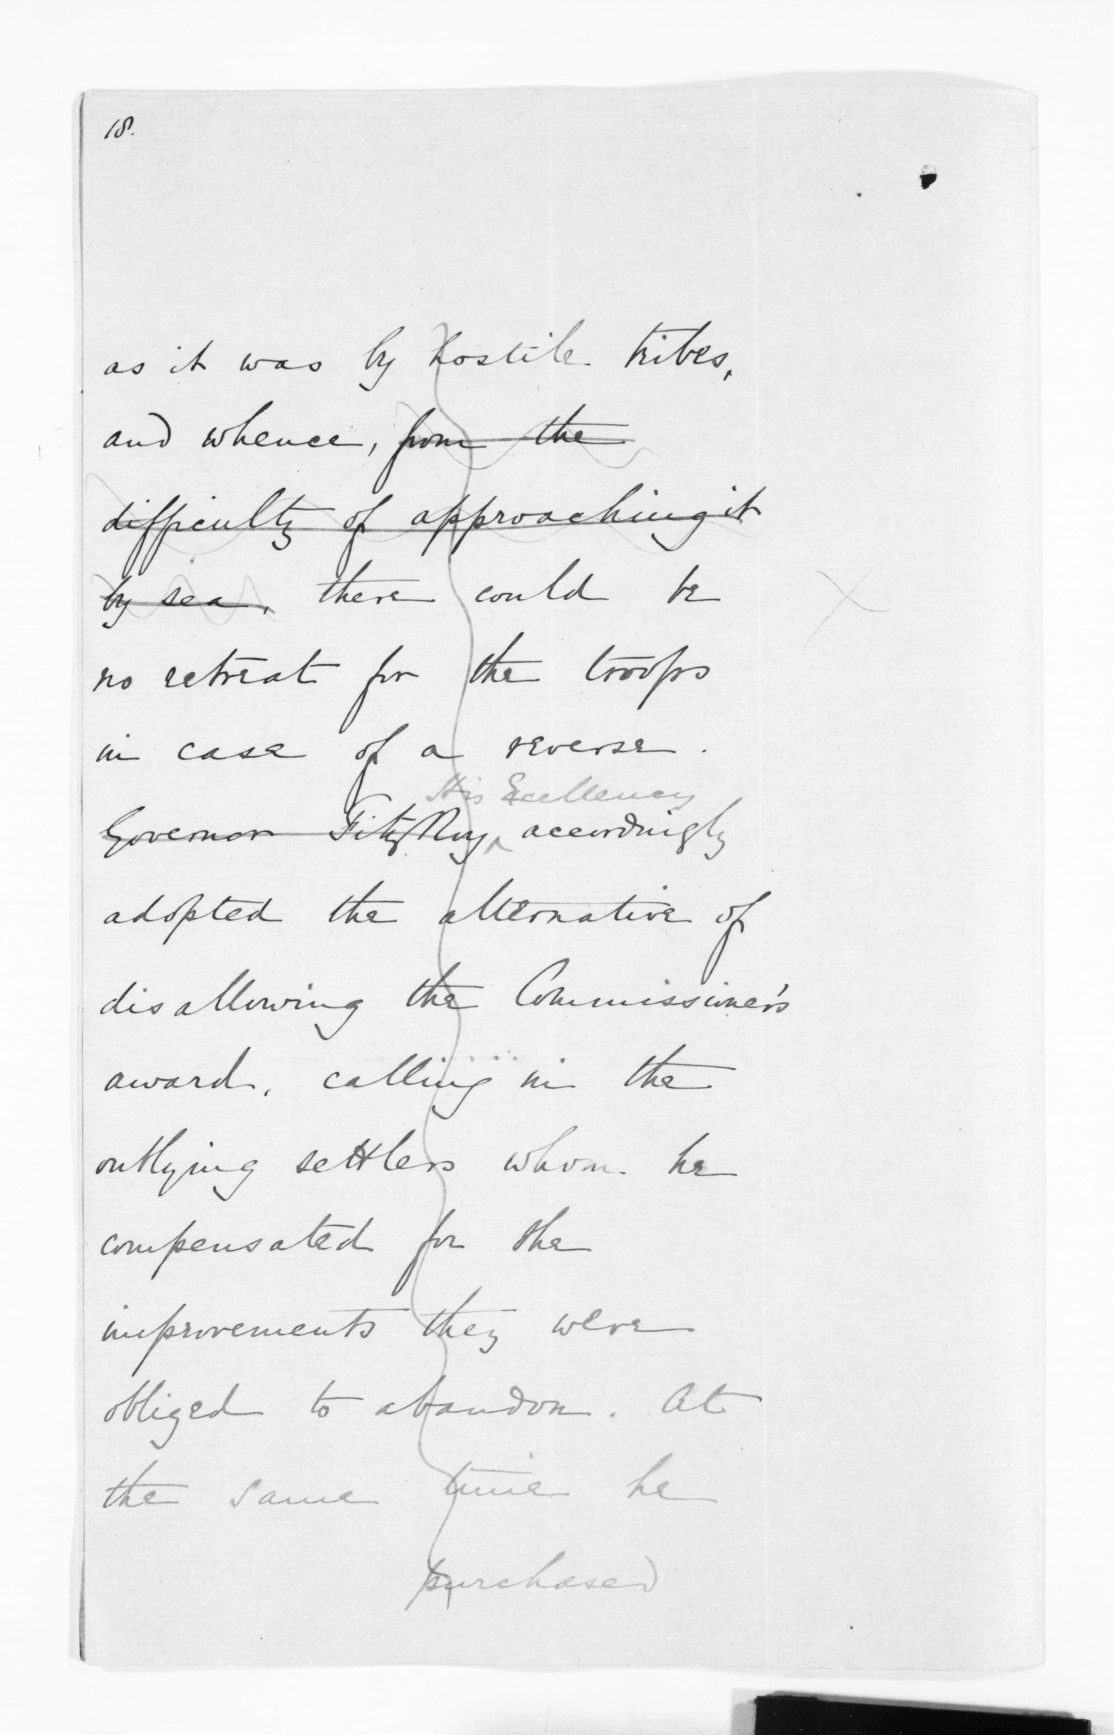 18.
as it was by hostile tribes,
and whence, from the
difficulty of approaching it
by sea, there could be
no retreat for the troops
in case of a reverse.
His Excellency
Governor FitzRoy ^ accordingly
adopted the alternative of
disallowing the Commissioner's
award, calling in the
outlying settlers whom he
compensated for the
improvements they were
obliged to abandon. At
the same time he
purchased